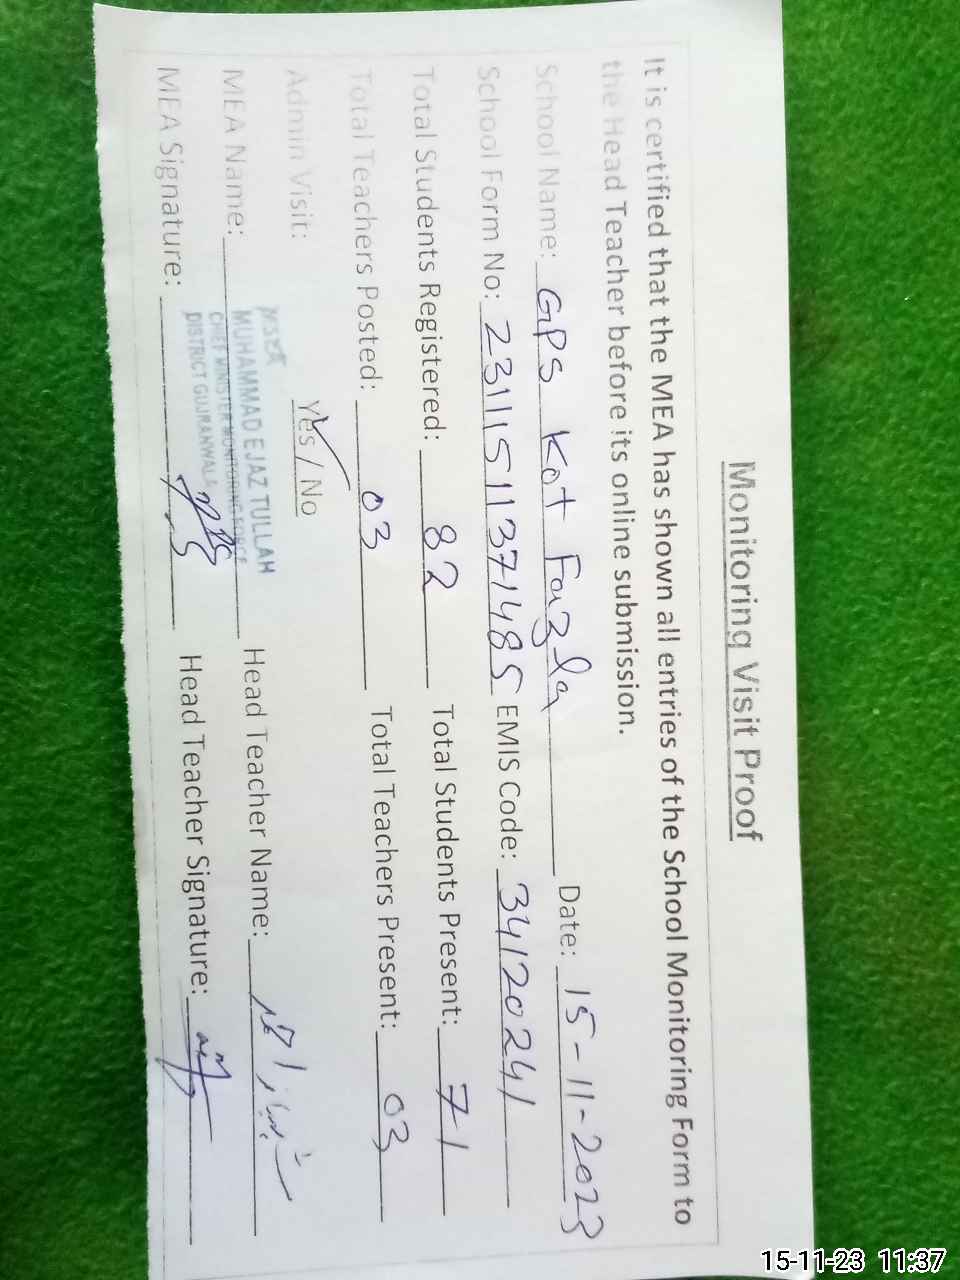 Monitoring Visit Proof
It is certified that the MEA has shown all entries of the School Monitoring Form to
the Head Teacher before its online submission.
School Name: GPS Kot Fazla Date: 15-11-2023
School Form No: 23111511371485 EMIS Code: 34120241
Total Students Registered: 82 Total Students Present: 71
Total Teachers Posted: 03 Total Teachers Present: 03
Admin Visit: Yes / No
MEA Name: MUHAMMAD EJAZ TULLAH Head Teacher Name:
CHIEF MINISTER MONITORING FORCE
DISTRICT GUJRANWALA
MEA Signature: Head Teacher Signature:
15-11-23 11:37